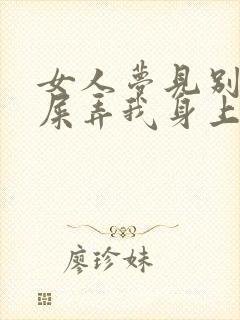 女人夢見別
屎弄我身上
廖珍妹